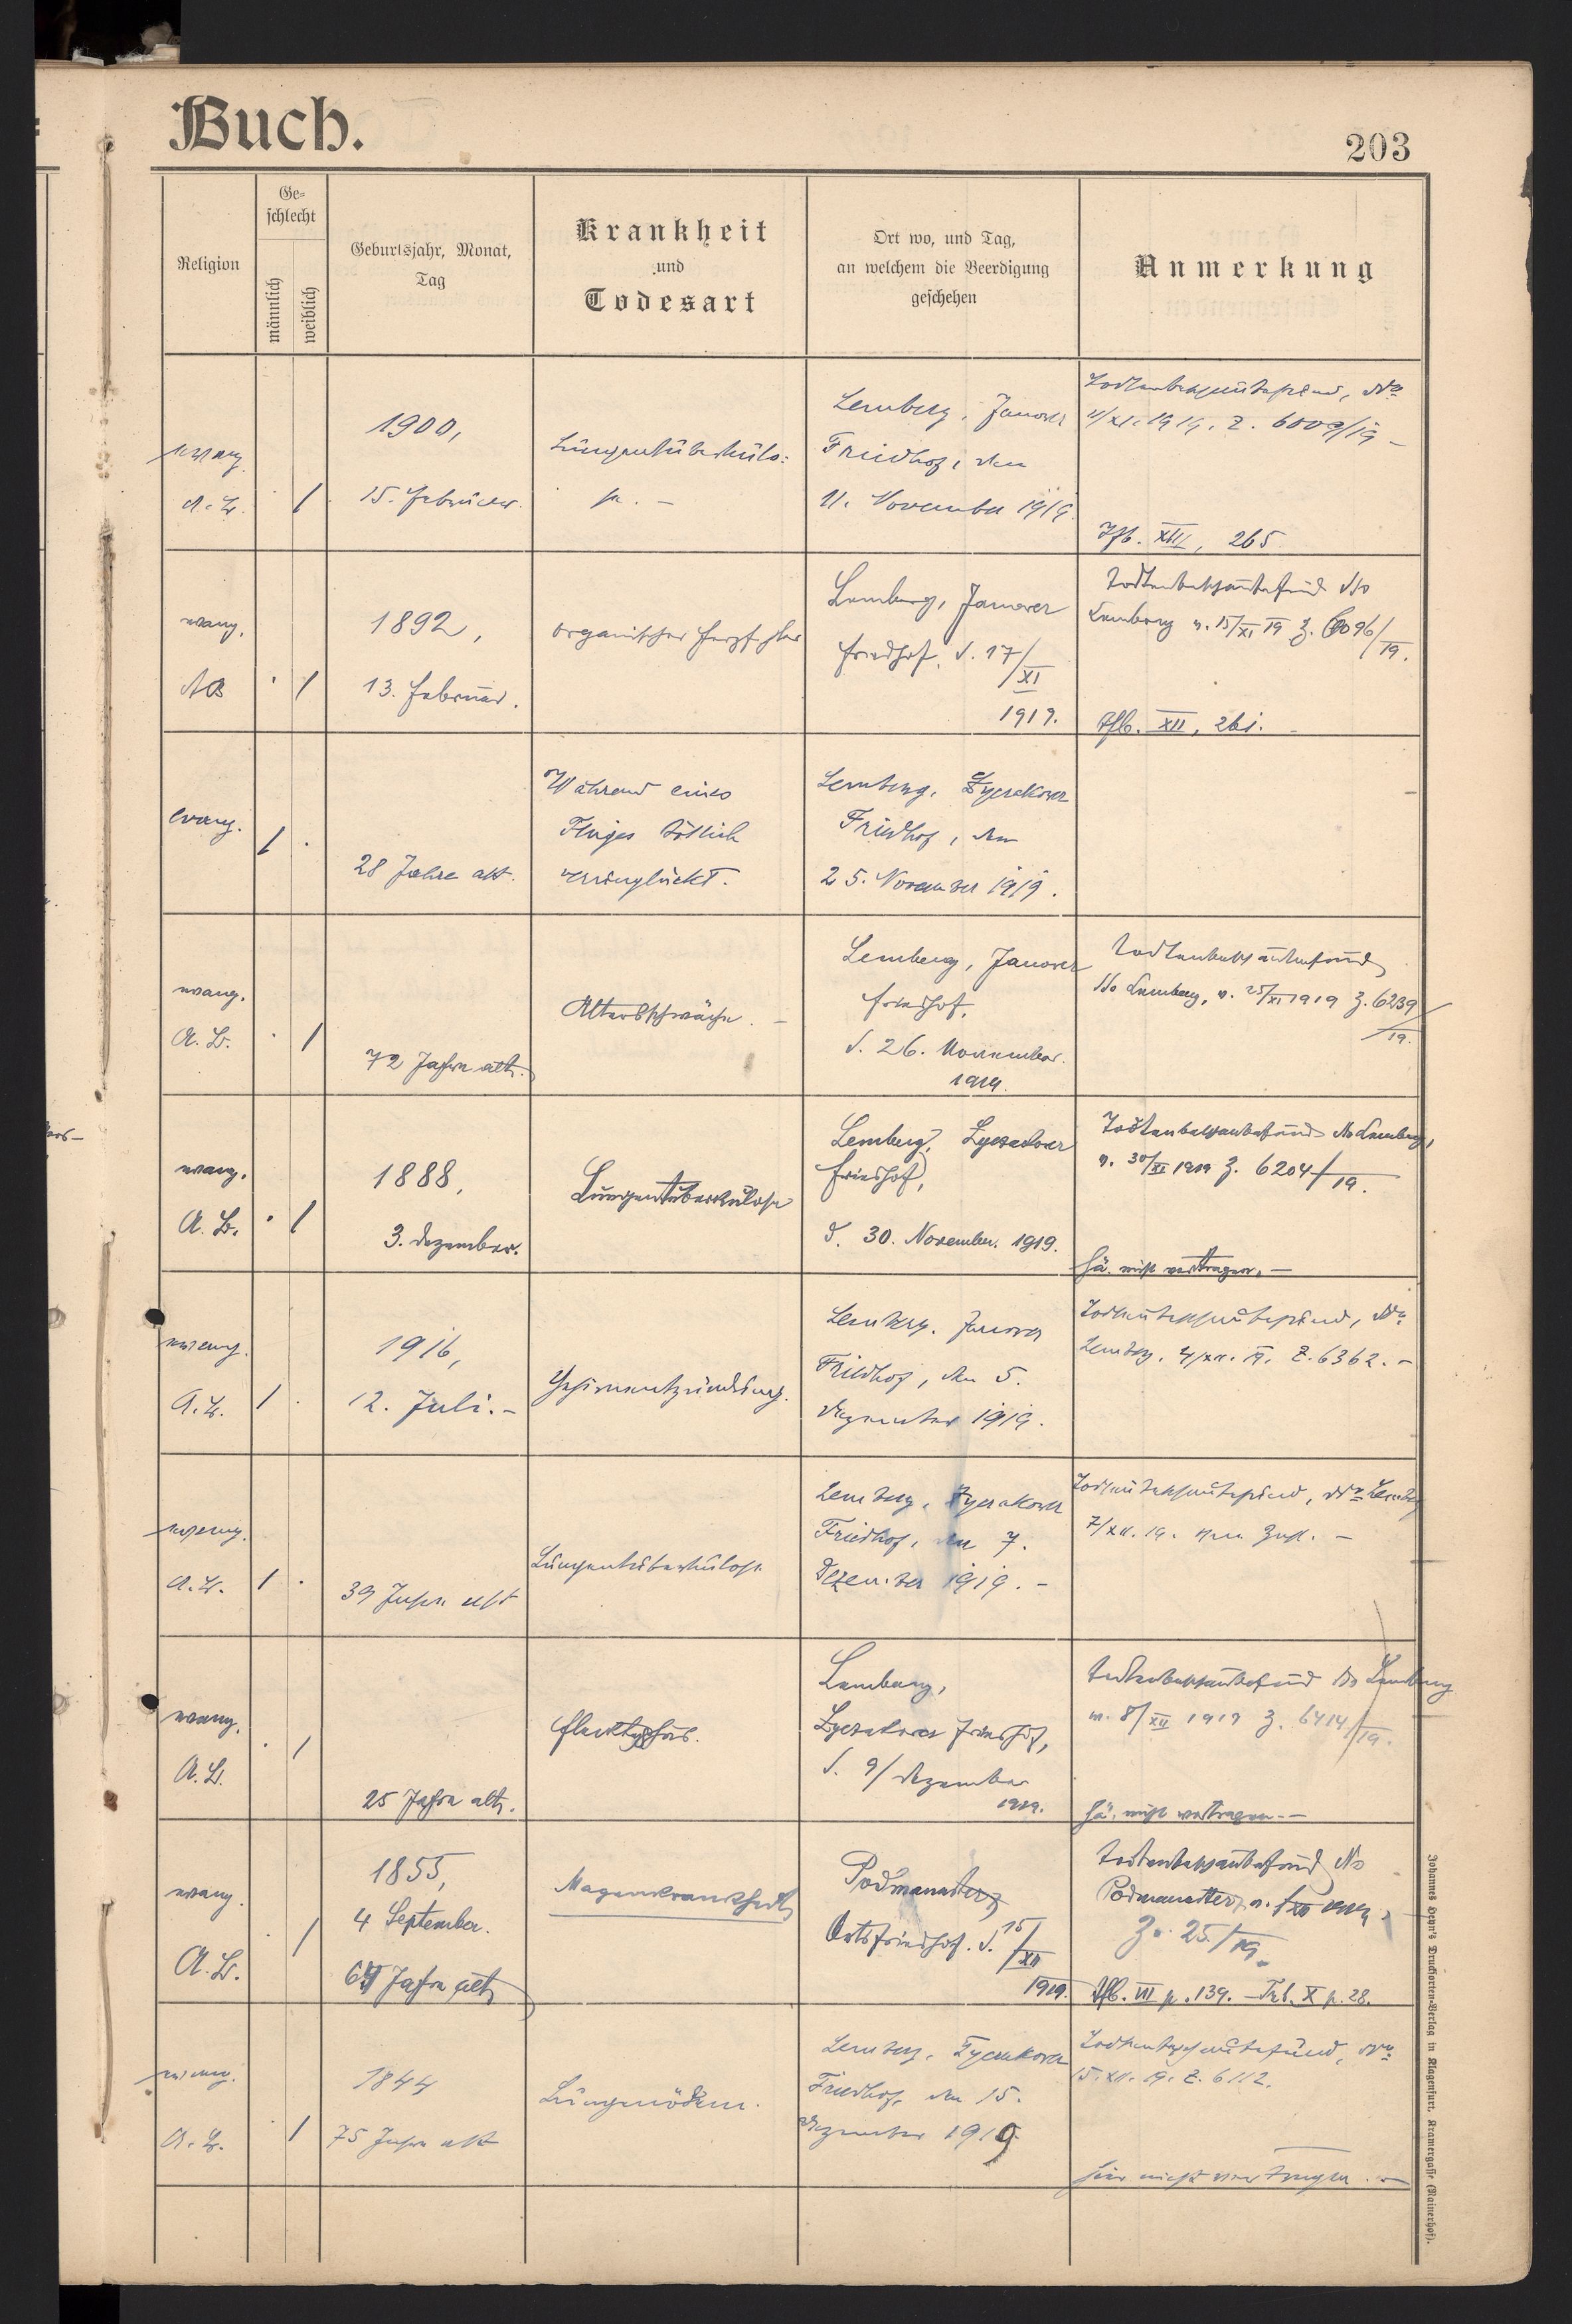 Buch.
203
Religion
Ge-
schlecht
männlich
weiblich
Geburtsjahr, Monat,
Tag
Krankheit
und
Todesart
Ort wo, und Tag,
an welchem die Beerdigung
geschehen
Anmerkung
evang.
A. B.
/
1900,
15. Februar.
Lungentuberkulo:
se. –
Lemberg, Janower
Friedhof, den
11. November 1919.
Todtenbeschaubefund, dto
11/XI. 1919. Z. 6009/19 –
Tfb. XIII, 265
evang.
AB
/
1892,
13. Februar.
organischer Herzfehler
Lemberg, Janower
Friedhof, d. 17/XI
1919.
Todtenbeschaubefund dto
Lemberg v. 15/XI 19 Z. 6096/19.
Tfb. XII, 261.
evang.
/
28 Jahre alt.
Während eines
Fluges tötlich
verunglückt.
Lemberg, Łyczakower
Friedhof, den
25. November 1919.
evang.
A. B.
/
72 Jahre alt.
Altersschwäche. –
Lemberg, Janower
Friedhof,
d. 26. November.
1919.
Todtenbeschaubefund
dto Lemberg, v. 25/XI 1919 Z. 6239/19.
evang.
A. B.
/
1888,
3. Dezember.
Lungentuberkulose
Lemberg, Lyczakower
Friedhof,
d. 30. November. 1919.
Todtenbeschaubefund dto Lemberg,
v. 30/XI 1919 Z. 6204/19.
hä. nicht vertragen. –
evang.
A. B.
/
1916,
12. Juli. –
Gehirnentzündung.
Lemberg, Janower
Friedhof, den 5.
Dezember 1919.
Todtenbeschaubefund, dto
Lemberg, 4/XII. 19. Z. 6362. –
evang.
A. B.
/
39 Jahre alt
Lungentuberkulose
Lemberg, Łyczakower
Friedhof, den 7.
Dezember 1919. –
Todtenbeschaubefund, dto Lemberg
7/XII. 19. –
evang.
A. B.
/
25 Jahre alt.
Flecktyphus.
Lemberg,
Lyczakower Friedhof,
d. 9/ Dezember
1919.
Todtenbeschaubefund dto Lemberg
v. 8/XII 1919 Z. 6414/19.
hä. nicht vertragen. –
evang.
A. B.
/
1855,
4 September.
64 Jahre alt
Magenkrankheit
Podmanasterz
Ortsfriedhof. d. 15/XII
1919.
Todtenbeschaubefund dto
Z. 25/19.
Tfb. VII p. 139. – Trb. X p. 28.
evang.
A. B.
/
1844
75 Jahre alt
Lungenödem.
Lemberg, Łyczakower
Friedhof, den 15.
Dezember 1919
Todtenbeschaubefund, dto
15. XII. 19. Z. 6112.
hier nicht vertragen. –
Johannes Heyn's Drucksorten-Verlag in Klagenfurt, Kramergasse (Rainerhof).